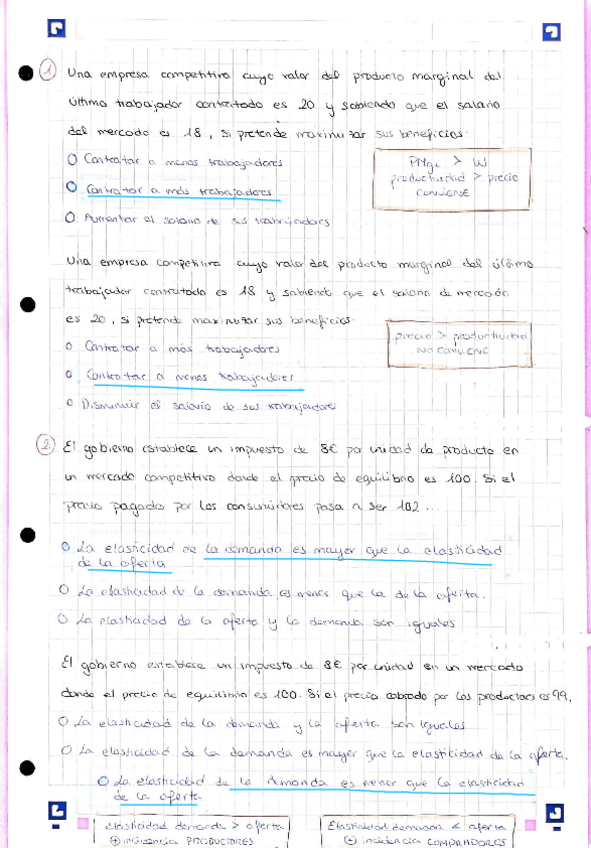 ① Una empresa competitiva cuyo valor del producto marginal del
último trabajador contratado es 20 y sabiendo que el salario
del mercado es 18, si pretende maximizar sus beneficios:
O Contratar a menos trabajadores
O Contratar a más trabajadores
O Aumentar el salario de sus trabajadores
PMgL > W
productividad > precio
CONVIENE
Una empresa competitiva cuyo valor del producto marginal del último
trabajador contratado es 18 y sabiendo que el salario de mercado
es 20, si pretende maximizar sus beneficios:
O Contratar a más trabajadores
O Contratar a menos trabajadores
O Disminuir el salario de sus trabajadores
precio > productividad
NO CONVIENE
② El gobierno establece un impuesto de 8€ por unidad de producto en
un mercado competitivo donde el precio de equilibrio es 100. Si el
precio pagado por los consumidores pasa a ser 102...
O La elasticidad de la demanda es mayor que la elasticidad
de la oferta
O La elasticidad de la demanda es menor que la de la oferta.
O La elasticidad de la oferta y la demanda son iguales
El gobierno establece un impuesto de 8€ por unidad en un mercado
donde el precio de equilibrio es 100. Si el precio cobrado por los productores es 99.
O La elasticidad de la demanda y la oferta son iguales
O La elasticidad de la demanda es mayor que la elasticidad de la oferta.
O La elasticidad de la demanda es menor que la elasticidad
de la oferta
Elasticidad demanda > oferta
⊕ incidencia PRODUCTORES
Elasticidad demanda < oferta
⊕ incidencia COMPRADORES